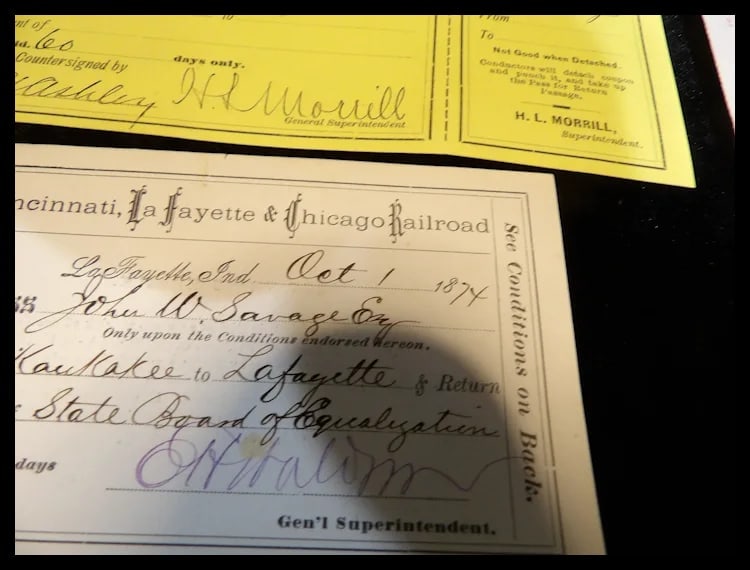 nt of to
60
days only.
Countersigned by
Ashley H. L. Morrill
General Superintendent
From
To
Not Good when Detached.
Conductors will detach coupon
and punch it, and take up
the Pass for Return
Passage.
H. L. MORRILL,
Superintendent.
ncinnati, La Fayette & Chicago Railroad
La Fayette, Ind. Oct 1 1874
ss John W. Savage Esq
Only upon the Conditions endorsed hereon.
Kankakee to Lafayette & Return
State Board of Equalization
days
Gen'l Superintendent.
See Conditions on Back.